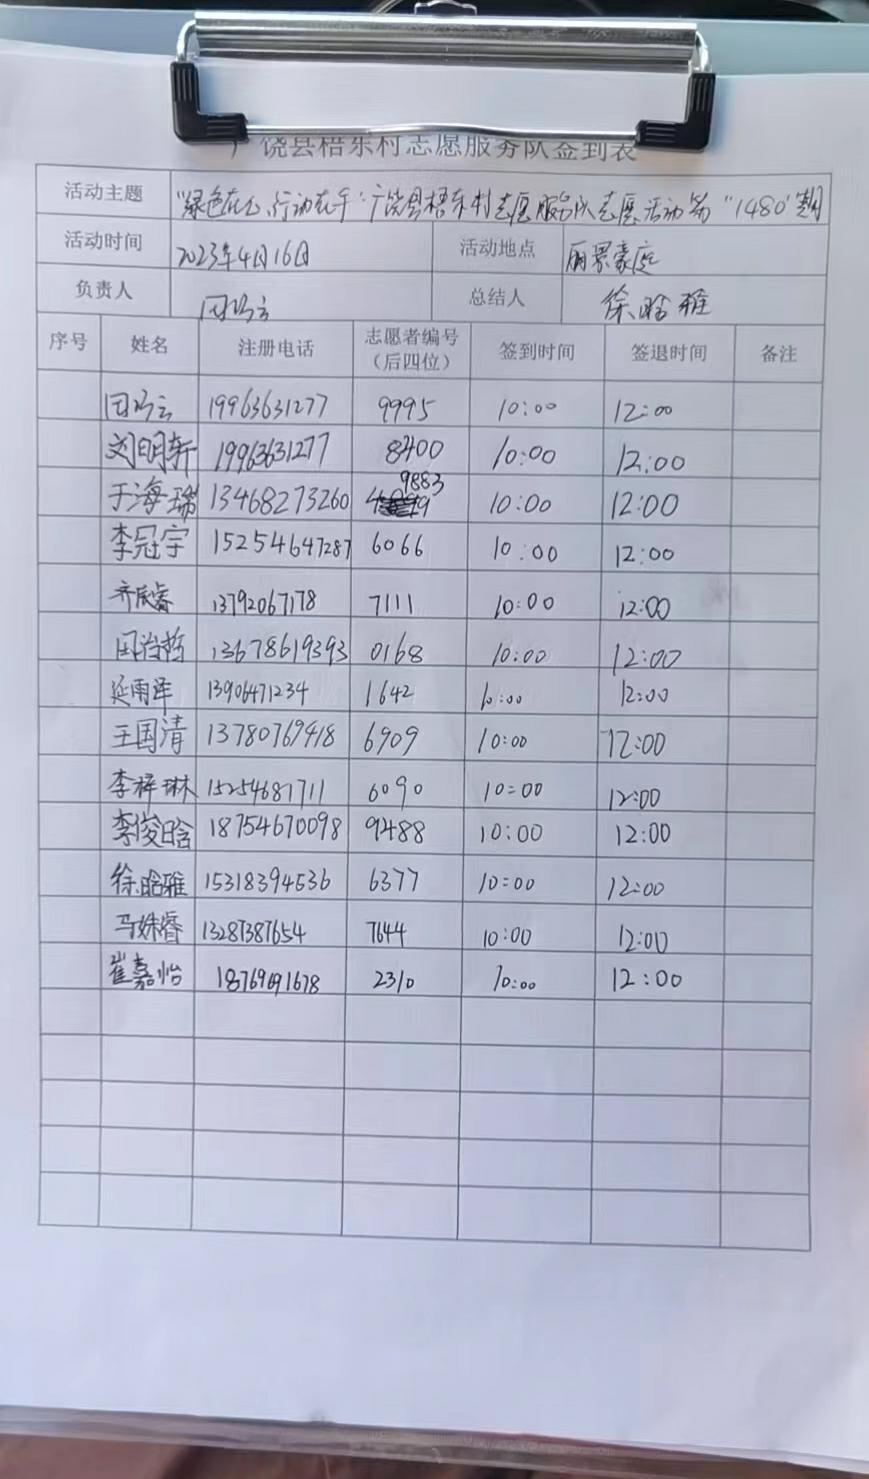 广饶县梧东村志愿服务队签到表
活动主题 "绿色在心,行动在手"广饶县梧东村志愿服务队志愿活动第"1480"期
活动时间 2023年4月16日 活动地点 丽景豪庭
负责人 总结人 徐晗雅
序号 姓名 注册电话 志愿者编号（后四位） 签到时间 签退时间 备注
19963631277 9995 10:00 12:00
刘明轩 19963631277 8400 10:00 12:00
于海瑞 13468273260 9883 10:00 12:00
李冠宇 15254647287 6066 10:00 12:00
齐辰睿 13792067178 7111 10:00 12:00
13678619393 0168 10:00 12:00
延雨泽 13906471234 1642 10:00 12:00
王国清 13780769418 6909 10:00 12:00
李梓琳 15254681711 6090 10:00 12:00
李俊晗 18754670098 9488 10:00 12:00
徐晗雅 15318394536 6377 10:00 12:00
马姝睿 13287387654 7644 10:00 12:00
崔嘉怡 2310 10:00 12:00